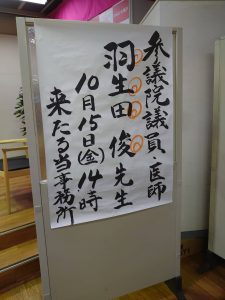 参議院議員・医師
羽生田 俊 先生
10月15日(金)14時
来たる当事務所